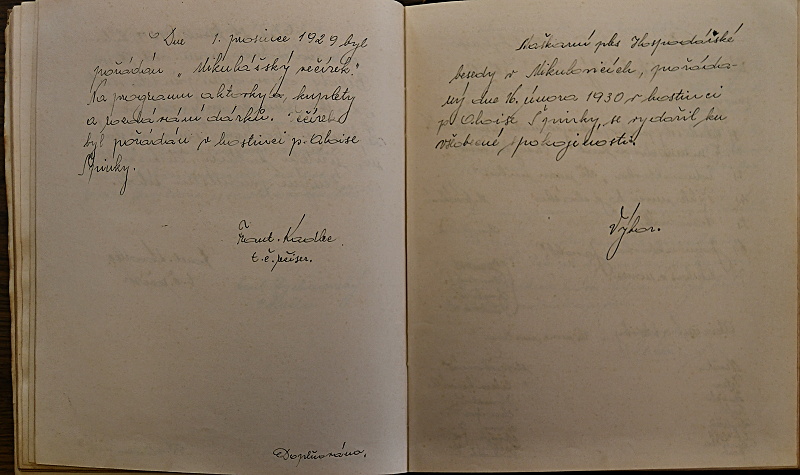 Dne 1. prosince 1929 byl
pořádán „Mikulášský večírek."
Na programu aktovky, kuplety
a rozdávání dárků. Večírek
byl pořádán v hostinci p. Aloise
Špinky.
Frant. Kadlec
t. č. předs.
Doplňováno.
Maškarní ples Hospodářské
besedy v Mikulovicích, pořáda-
ný dne 16. února 1930 v hostinci
p. Aloise Špinky, se vydařil ku
všeobecné spokojenosti.
Výbor.